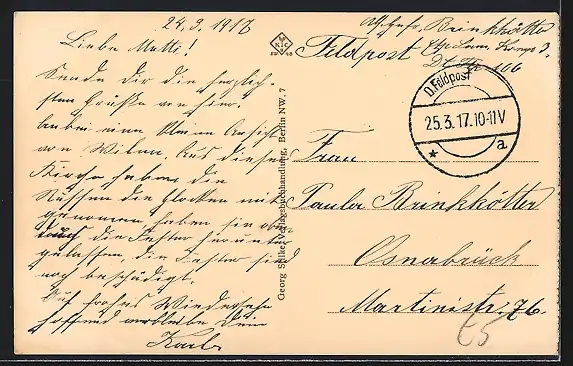 24.3.1917
Liebe Mutti!
Sende dir die herzlich-
sten Grüße von hier.
Anbei eine kleine Ansicht
von Wilna. Aus dieser
Kirche haben die
Russen die Glocken mit-
genommen haben sie aber
durch die Fester herunter
gelassen, die Fester sind
noch beschädigt.
Auf frohes Wiedersehn
hoffend verbleibe Dein
Karl
Georg Stilke, Verlagsbuchhandlung, Berlin NW. 7
Abs. Brinkkötter
Feldpost
D. Feldpost
25.3.17.10-11V
* a
Frau
Paula Brinkkötter
Osnabrück
Martinistr. 76.